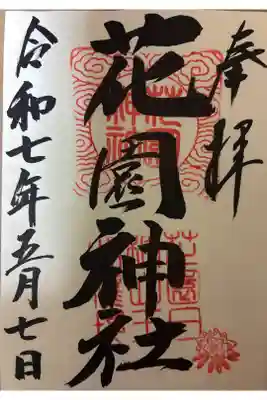 奉拝
花園神社
令和七年五月七日